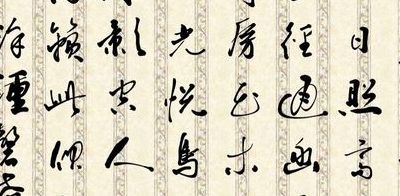 日照高
徑通幽
房花木
光悦鳥
影空人
籟此俱
餘鐘磬